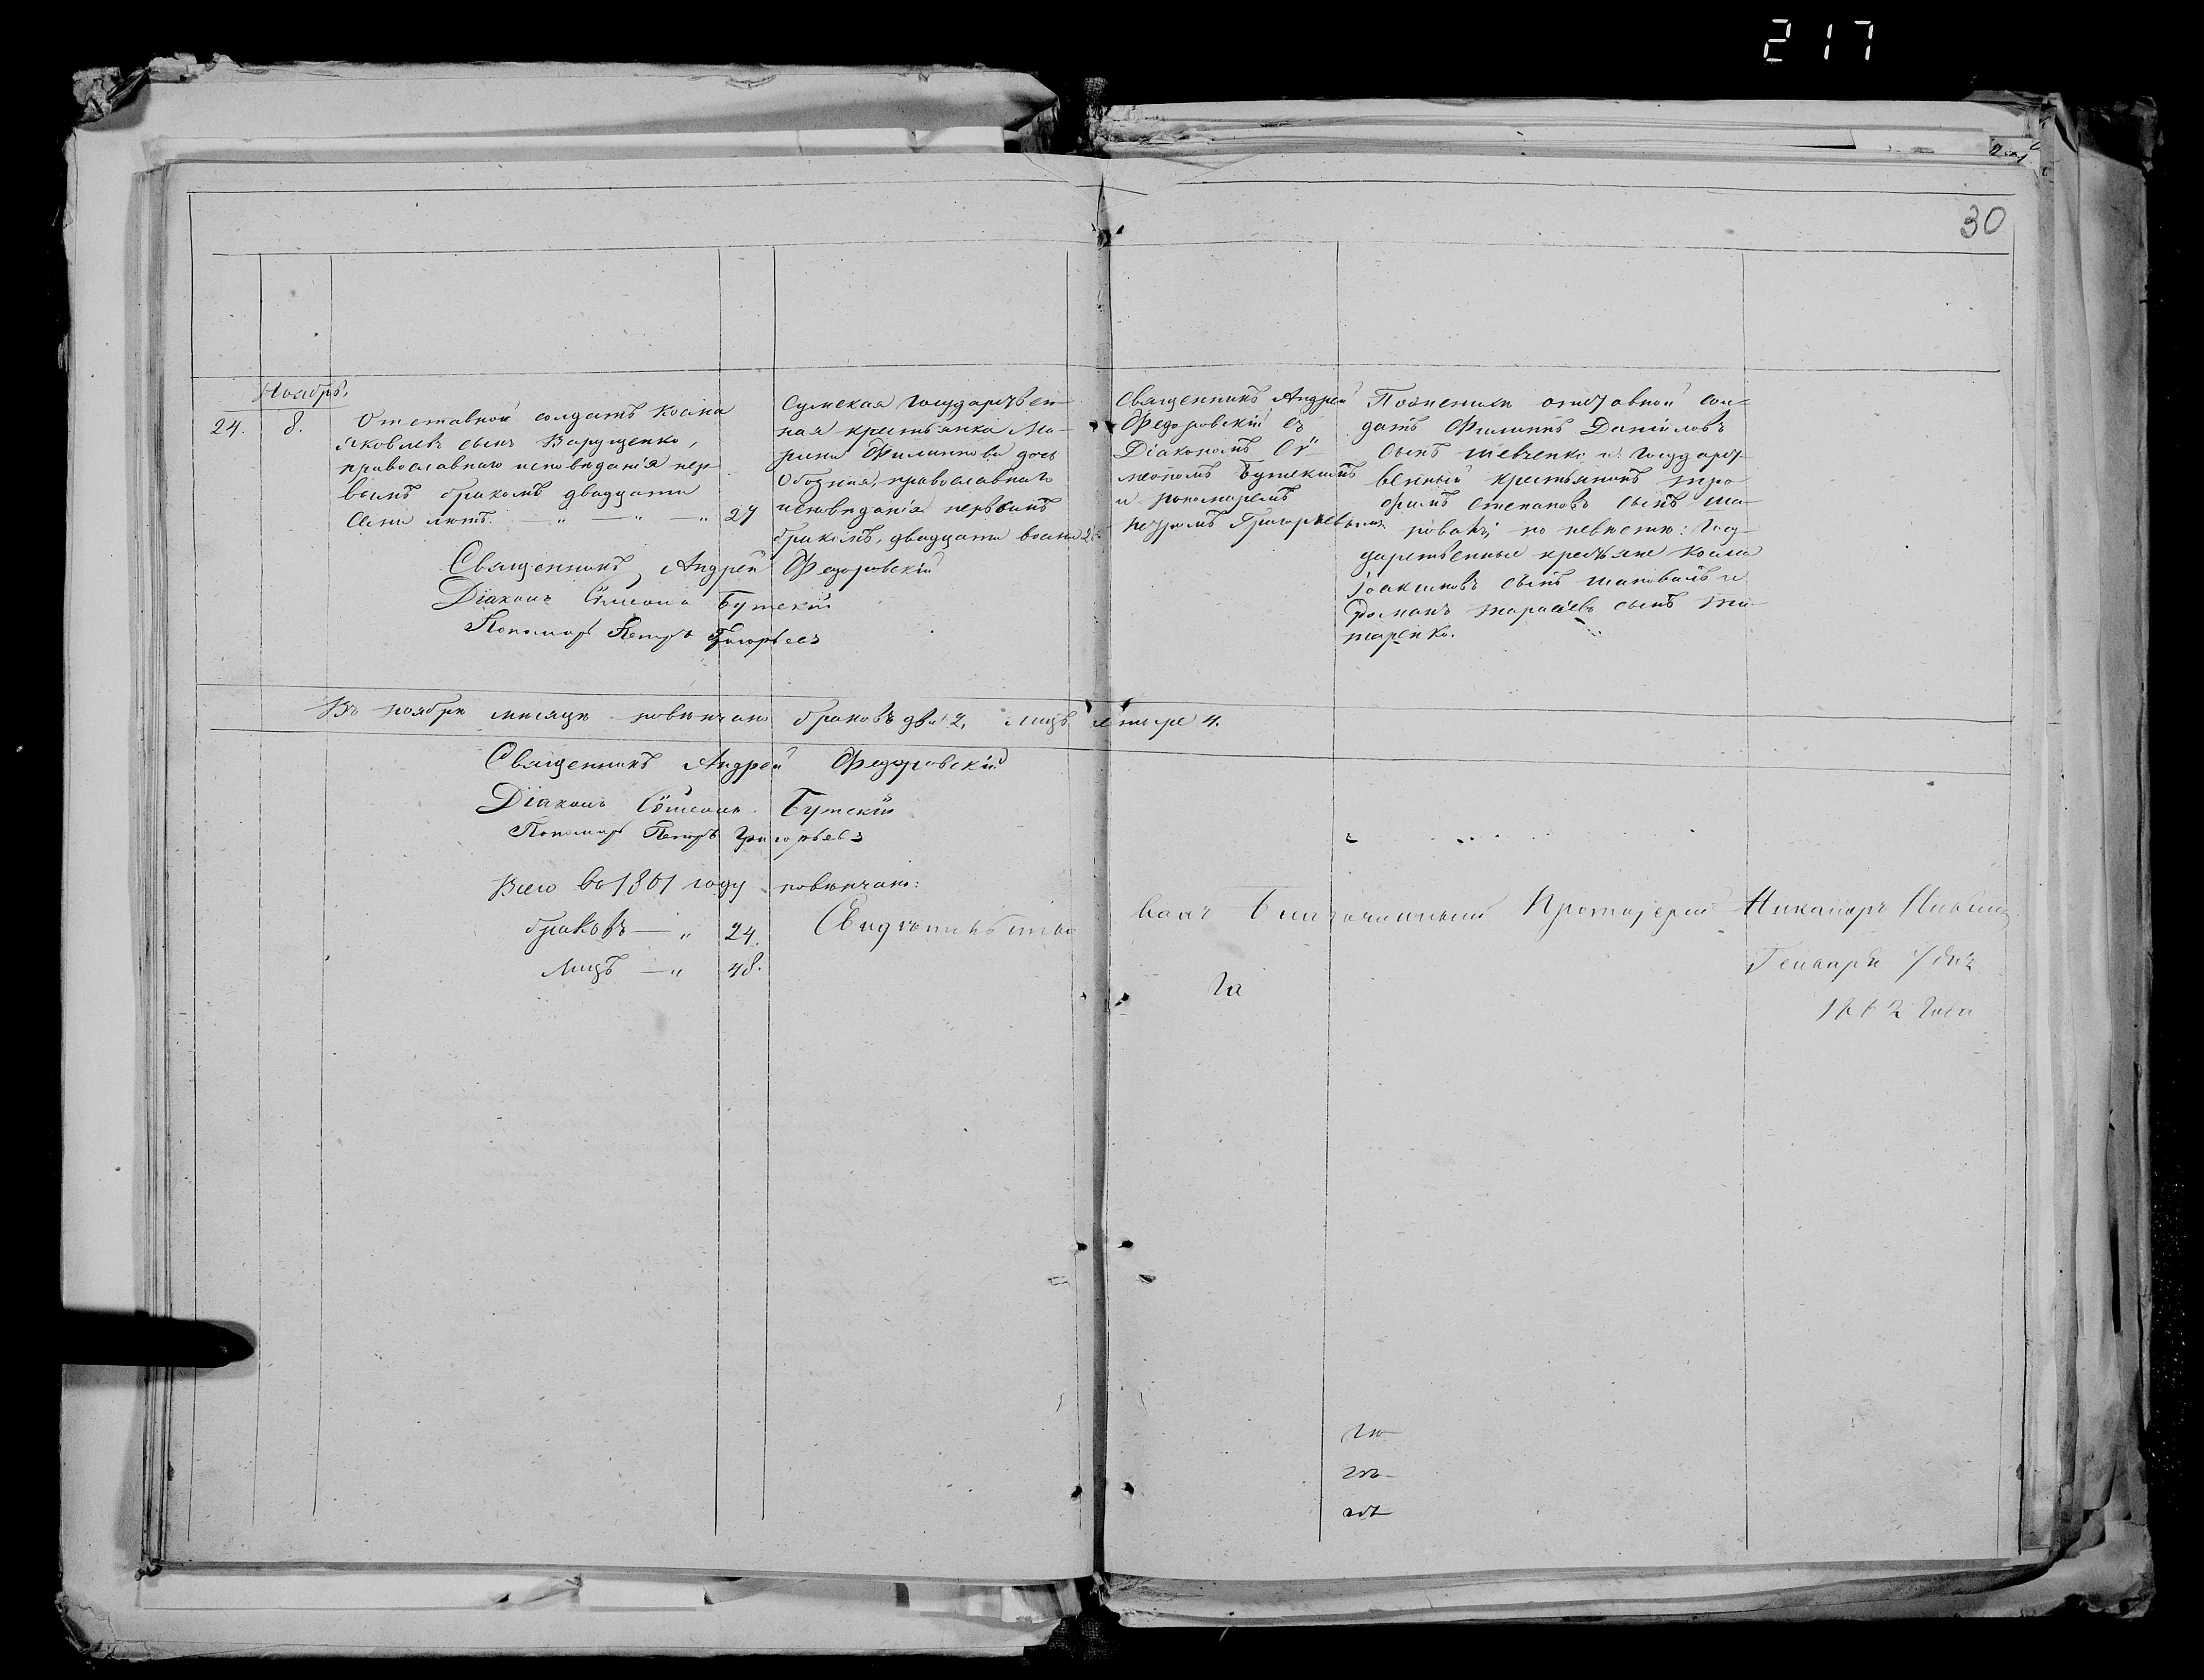 217
30
Ноябрь.
24.
8.
Отставной солдатъ Косма
Яковлевъ сынъ Варущенко,
православнаго исповѣданія пер-
вымъ бракомъ двадцати
семи лѣтъ. — " — " — " 27
Сумская государствен-
ная крестьянка Ма-
рина Филиппова дочь
православнаго
исповѣданія первымъ
бракомъ, двадцати восьми 28.
Священникъ Андрей
Федоровскій съ
Діакономъ Сѵ-
меономъ Бутскимъ
и пономаремъ
Петромъ Григорьевымъ
По женихѣ отставной сол-
датъ Филиппъ Даніиловъ
сынъ Шевченко и государст-
венный крестьянинъ Тро-
фимъ Степановъ сынъ Ша-
по невѣстѣ: Госу-
дарственные крестьяне Косма
Іоакимовъ сынъ Шаповалъ и
Романъ Тарасіевъ сынъ Ти-
таренко.
Священникъ Андрей Федоровскій
Діаконъ Сѵмеонъ Бутскій
Пономарь Петръ Григорьевъ
Въ ноябрѣ мѣсяцѣ повѣнчано браковъ два 2, лицъ четыре 4.
Священникъ Андрей Федоровскій
Діаконъ Сѵмеонъ Бутскій
Пономарь Петръ Григорьевъ
Всего въ 1861 году повѣнчано:
браковъ — " 24.
Лицъ — " 48.
Свидѣтельство
валъ Благочинный Протоіерей Никаноръ
Генваря 7 дня
1862 года